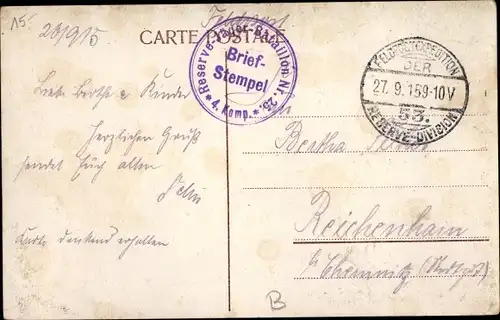 15
Feldpost
CARTE POSTALE
26/9/15
Reserve-Jäger-Bataillon Nr. 25.
Brief-
Stempel
* 4. Komp. *
FELDPOSTEXPEDITION
DER
27.9.15 9-10V
53.
RESERVE-DIVISION
Liebe Bertha & Kinder
Herzlichen Gruß
sendet Euch allen
Karte dankend erhalten
Bertha
Reichenhain
b/ Chemnitz
B